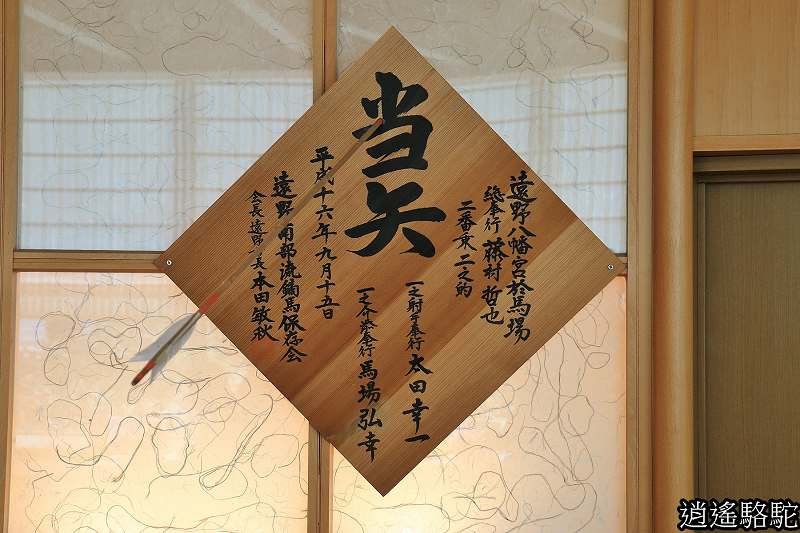 当矢
遠野八幡宮於馬場
総奉行 藤村哲也
二番乗 二之的
一之射手奉行 太田幸一
一之介添奉行 馬場弘幸
平成十六年九月十五日
遠野南部流鏑馬保存会
会長 遠野市長 本田敏秋
逍遙駱駝